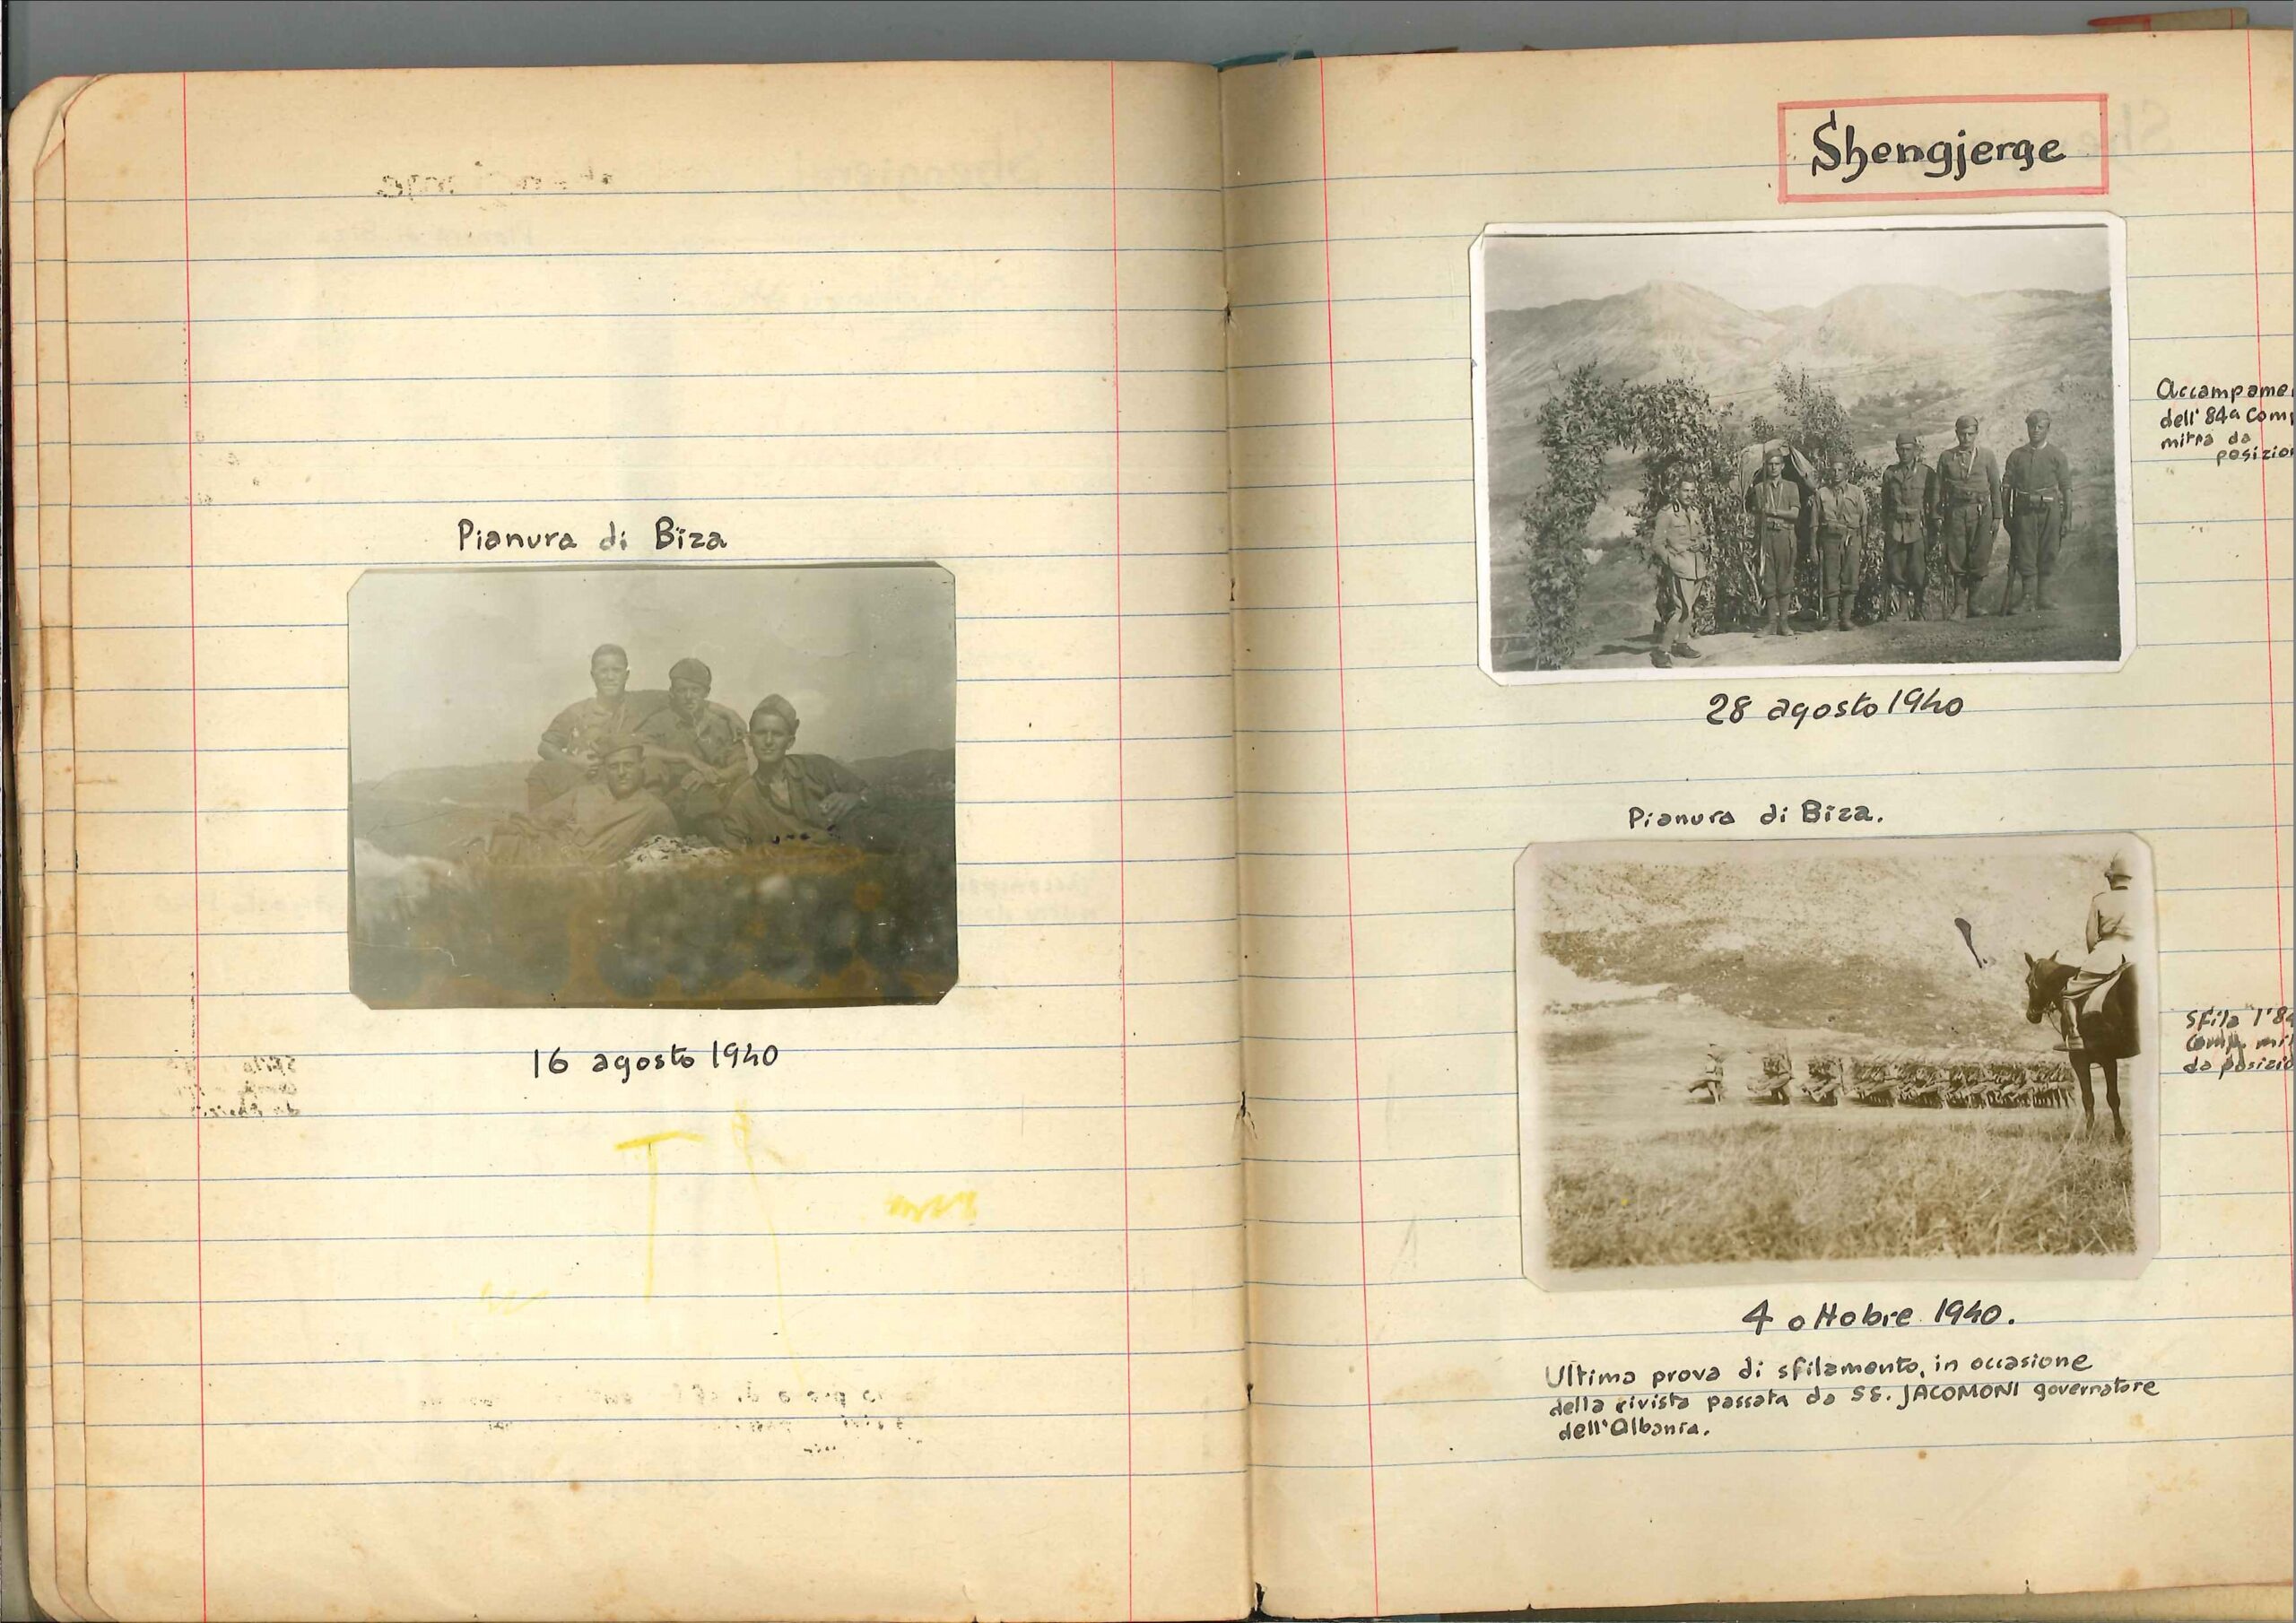 Pianura di Biza
16 agosto 1940
Shengjerge
Accampame
dell'84ª Comp
mitra da
posizion
28 agosto 1940
Pianura di Biza.
Sfila l'84
Comp. mit
da posizio
4 ottobre 1940.
Ultima prova di sfilamento, in occasione
della rivista passata da SE. JACOMONI governatore
dell'Albania.